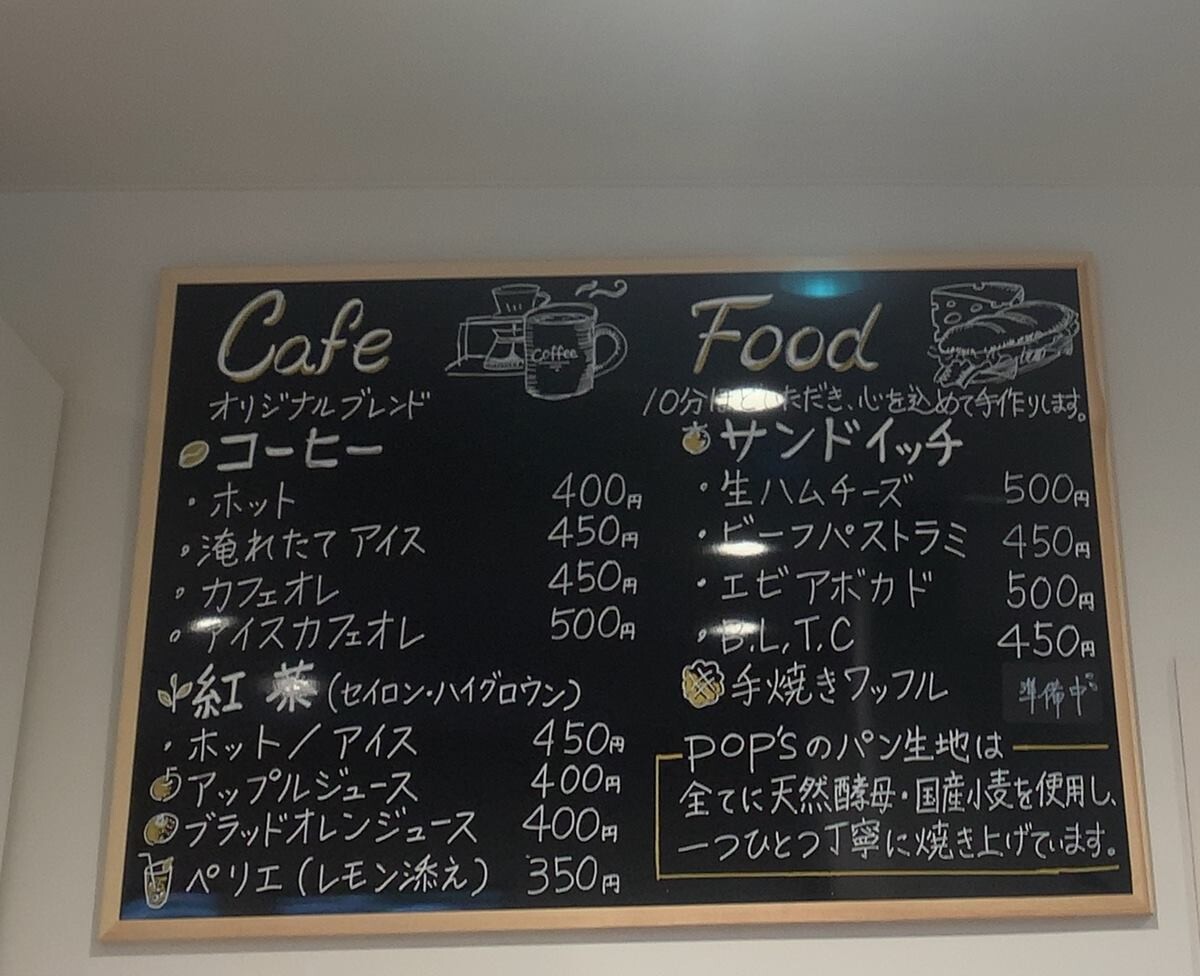 Cafe
Coffee
オリジナルブレンド
コーヒー
・ホット 400円
・淹れたて アイス 450円
・カフェオレ 450円
・アイスカフェオレ 500円
紅茶(セイロン・ハイグロウン)
・ホット/アイス 450円
アップルジュース 400円
ブラッドオレンジュース 400円
ペリエ(レモン添え) 350円
Food
10分ほどいただき、心を込めて手作りします。
サンドイッチ
・生ハムチーズ 500円
・ビーフパストラミ 450円
・エビアボカド 500円
・B.L.T.C 450円
手焼きワッフル 準備中
POP'sのパン生地は
全てに天然酵母・国産小麦を使用し、
一つひとつ丁寧に焼き上げています。